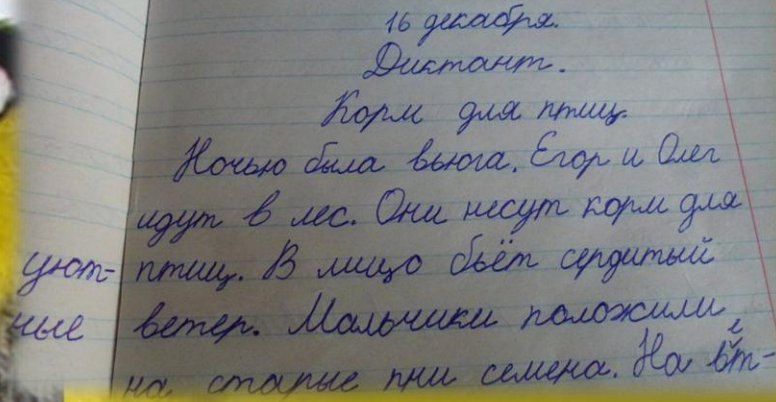 16 декабря.
Диктант.
Корм для птиц.
Ночью была вьюга. Егор и Олег
идут в лес. Они несут корм для
птиц. В лицо бьёт сердитый
ветер. Мальчики положили
на старые пни семена. На вет-
уют-
ные